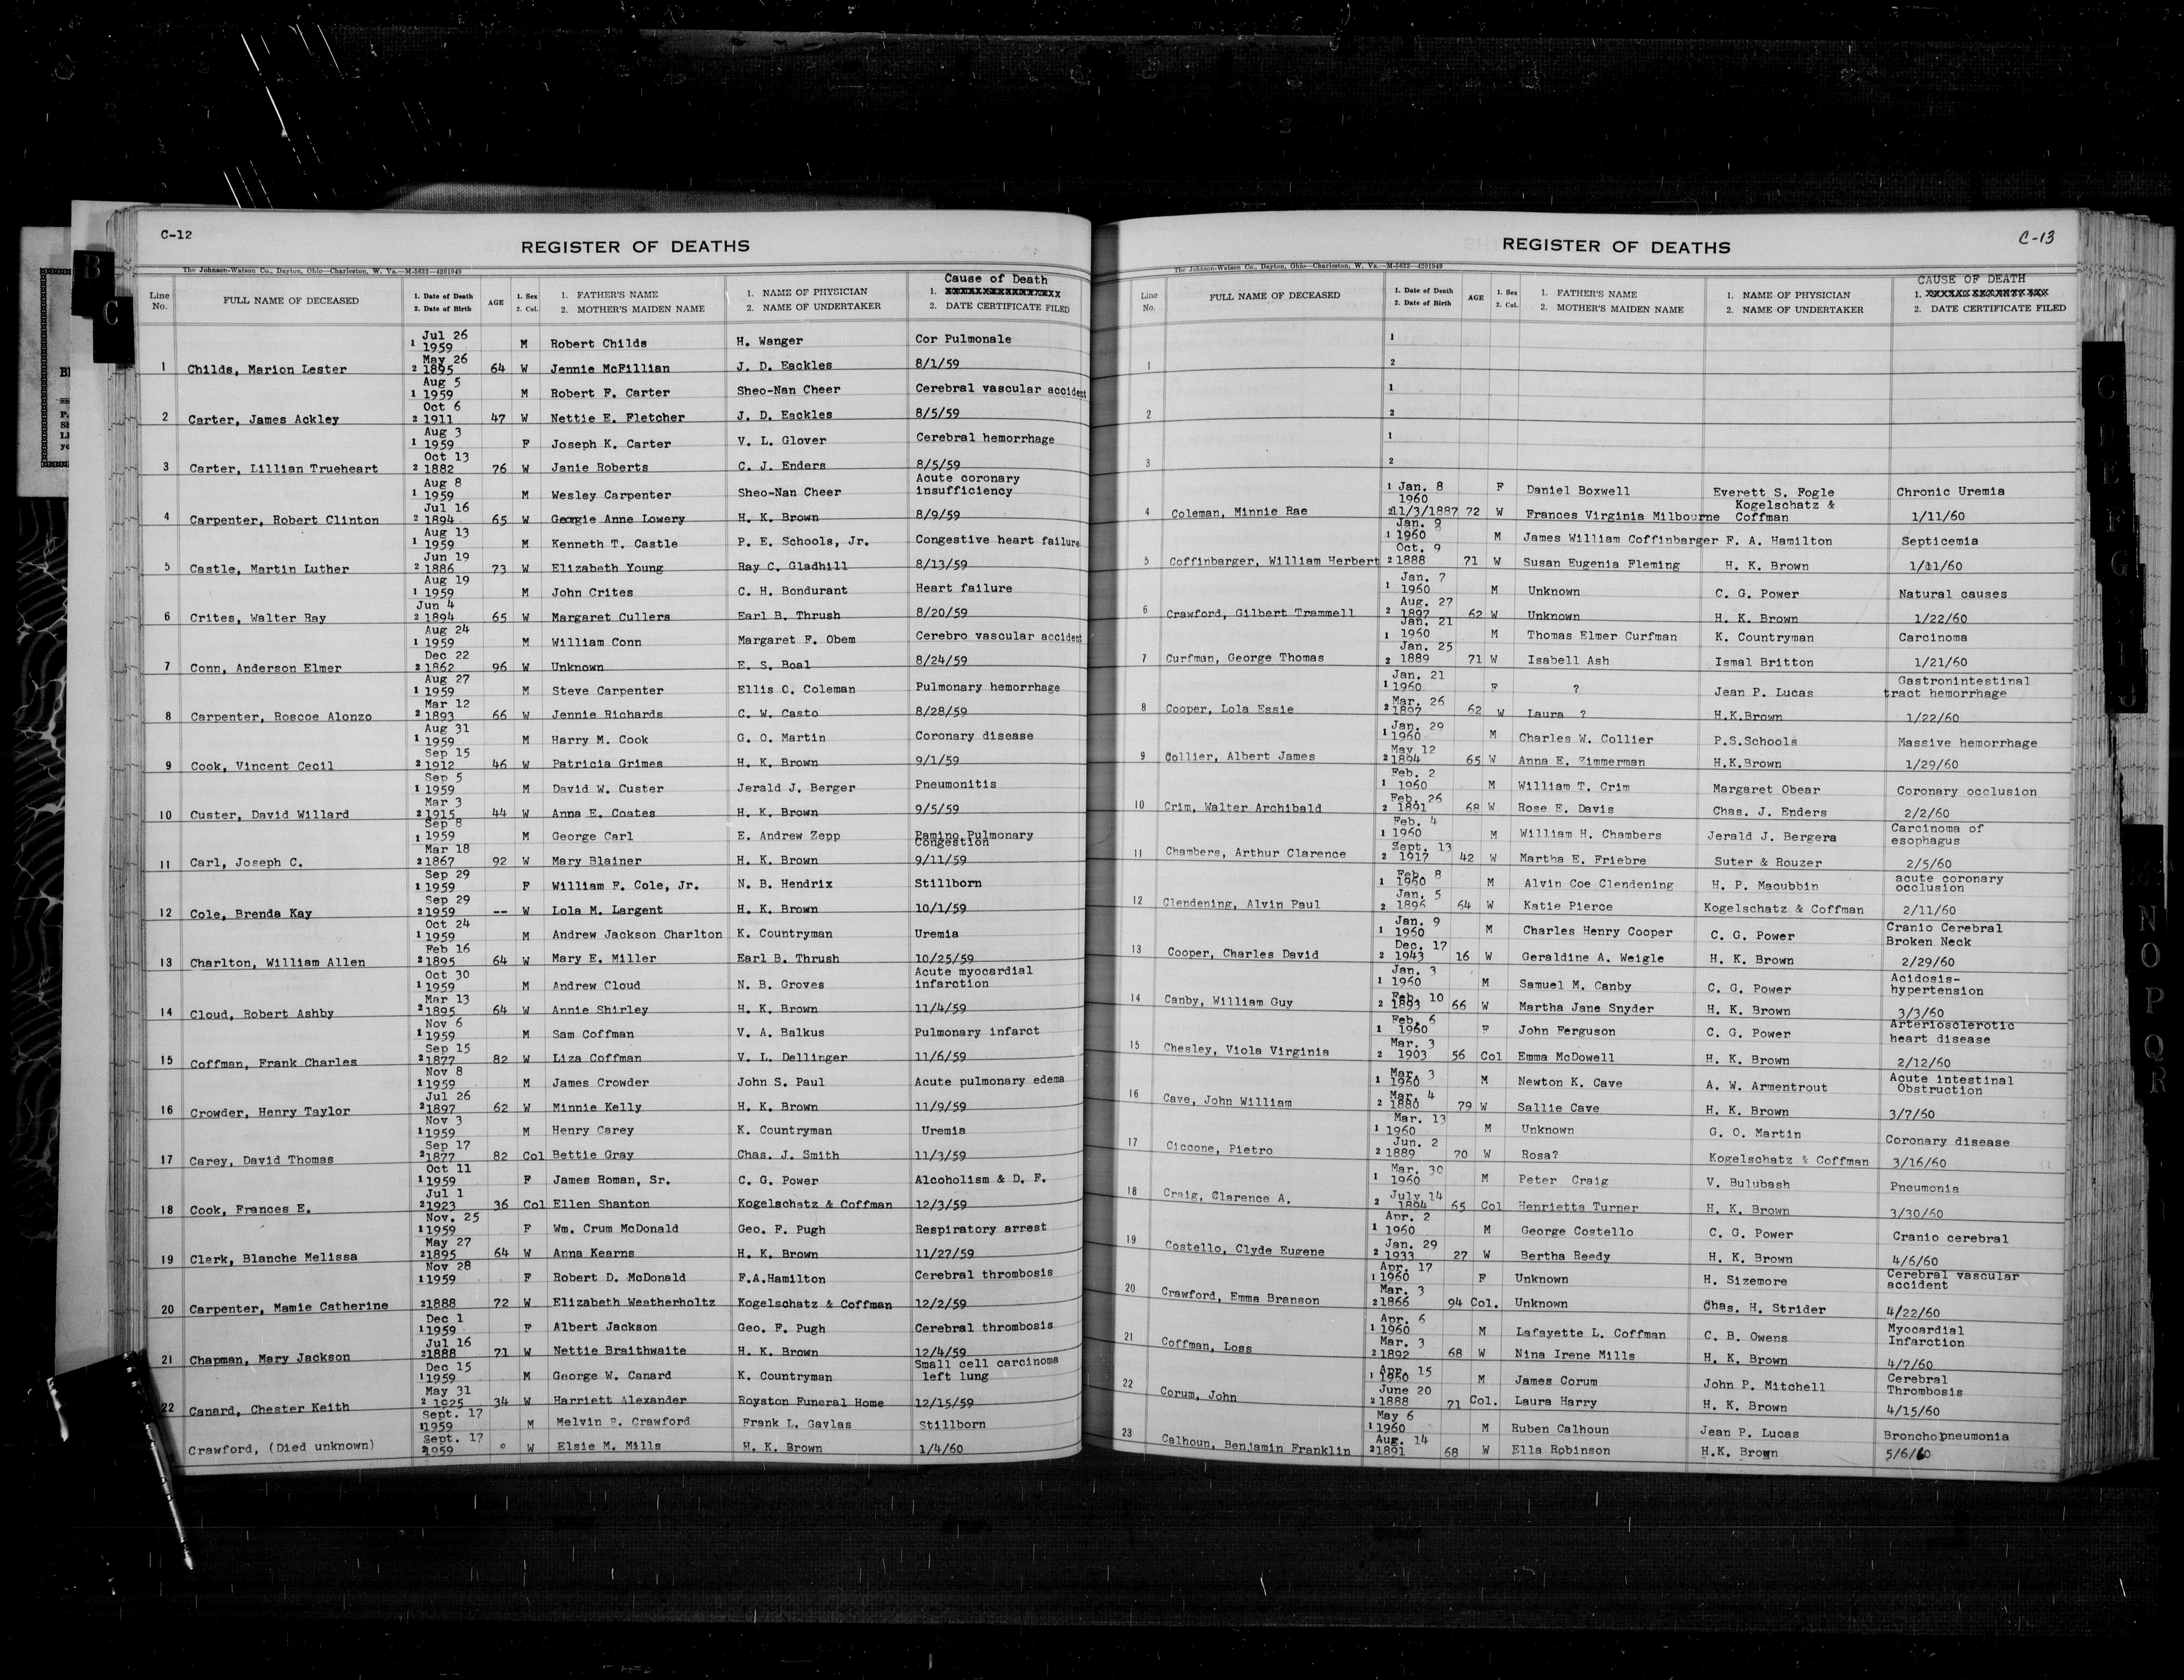 C-12
REGISTER OF DEATHS
The Johnson-Watson Co., Dayton, Ohio—Charleston, W. Va.—M-5632—4201949
Line No. FULL NAME OF DECEASED 1. Date of Death 2. Date of Birth AGE 1. Sex 2. Col. 1. FATHER'S NAME 2. MOTHER'S MAIDEN NAME 1. NAME OF PHYSICIAN 2. NAME OF UNDERTAKER Cause of Death 1. 2. DATE CERTIFICATE FILED
1 Jul 26 1959 M Robert Childs H. Wanger Cor Pulmonale
1 Childs, Marion Lester 2 May 26 1895 64 W Jennie McFillian J. D. Eackles 8/1/59
1 Aug 5 1959 M Robert F. Carter Sheo-Nan Cheer Cerebral vascular accident
2 Carter, James Ackley 2 Oct 6 1911 47 W Nettie E. Fletcher J. D. Eackles 8/5/59
1 Aug 3 1959 F Joseph K. Carter V. L. Glover Cerebral hemorrhage
3 Carter, Lillian Trueheart 2 Oct 13 1882 76 W Janie Roberts C. J. Enders 8/5/59
1 Aug 8 1959 M Wesley Carpenter Sheo-Nan Cheer Acute coronary insufficiency
4 Carpenter, Robert Clinton 2 Jul 16 1894 65 W Georgie Anne Lowery H. K. Brown 8/9/59
1 Aug 13 1959 M Kenneth T. Castle P. E. Schools, Jr. Congestive heart failure
5 Castle, Martin Luther 2 Jun 19 1886 73 W Elizabeth Young Ray C. Gladhill 8/13/59
1 Aug 19 1959 M John Crites C. H. Bondurant Heart failure
6 Crites, Walter Ray 2 Jun 4 1894 65 W Margaret Cullers Earl B. Thrush 8/20/59
1 Aug 24 1959 M William Conn Margaret F. Obem Cerebro vascular accident
7 Conn, Anderson Elmer 2 Dec 22 1862 96 W Unknown E. S. Boal 8/24/59
1 Aug 27 1959 M Steve Carpenter Ellis O. Coleman Pulmonary hemorrhage
8 Carpenter, Roscoe Alonzo 2 Mar 12 1893 66 W Jennie Richards C. W. Casto 8/28/59
1 Aug 31 1959 M Harry M. Cook G. O. Martin Coronary disease
9 Cook, Vincent Cecil 2 Sep 15 1912 46 W Patricia Grimes H. K. Brown 9/1/59
1 Sep 5 1959 M David W. Custer Jerald J. Berger Pneumonitis
10 Custer, David Willard 2 Mar 3 1915 44 W Anna E. Coates H. K. Brown 9/5/59
1 Sep 8 1959 M George Carl E. Andrew Zepp Pulmonary Congestion
11 Carl, Joseph C. 2 Mar 18 1867 92 W Mary Blainer H. K. Brown 9/11/59
1 Sep 29 1959 F William F. Cole, Jr. N. B. Hendrix Stillborn
12 Cole, Brenda Kay 2 Sep 29 1959 -- W Lola M. Largent H. K. Brown 10/1/59
1 Oct 24 1959 M Andrew Jackson Charlton K. Countryman Uremia
13 Charlton, William Allen 2 Feb 16 1895 64 W Mary E. Miller Earl B. Thrush 10/25/59
1 Oct 30 1959 M Andrew Cloud N. B. Groves Acute myocardial infarction
14 Cloud, Robert Ashby 2 Mar 13 1895 64 W Annie Shirley H. K. Brown 11/4/59
1 Nov 6 1959 M Sam Coffman V. A. Balkus Pulmonary infarct
15 Coffman, Frank Charles 2 Sep 15 1877 82 W Liza Coffman V. L. Dellinger 11/6/59
1 Nov 8 1959 M James Crowder John S. Paul Acute pulmonary edema
16 Crowder, Henry Taylor 2 Jul 26 1897 62 W Minnie Kelly H. K. Brown 11/9/59
1 Nov 3 1959 M Henry Carey K. Countryman Uremia
17 Carey, David Thomas 2 Sep 17 1877 82 Col Bettie Gray Chas. J. Smith 11/3/59
1 Oct 11 1959 F James Roman, Sr. C. G. Power Alcoholism & D. F.
18 Cook, Frances E. 2 Jul 1 1923 36 Col Ellen Shanton Kogelschatz & Coffman 12/3/59
1 Nov. 25 1959 F Wm. Crum McDonald Geo. F. Pugh Respiratory arrest
19 Clerk, Blanche Melissa 2 May 27 1895 64 W Anna Kearns H. K. Brown 11/27/59
1 Nov 28 1959 F Robert D. McDonald F.A.Hamilton Cerebral thrombosis
20 Carpenter, Mamie Catherine 2 1888 72 W Elizabeth Weatherholtz Kogelschatz & Coffman 12/2/59
1 Dec 1 1959 F Albert Jackson Geo. F. Pugh Cerebral thrombosis
21 Chapman, Mary Jackson 2 Jul 16 1888 71 W Nettie Braithwaite H. K. Brown 12/4/59
1 Dec 15 1959 M George W. Canard K. Countryman Small cell carcinoma left lung
22 Canard, Chester Keith 2 May 31 1925 34 W Harriett Alexander Royston Funeral Home 12/15/59
1 Sept. 17 1959 M Melvin P. Crawford Frank L. Gavlas Stillborn
Crawford, (Died unknown) 2 Sept. 17 1959 0 W Elsie M. Mills H. K. Brown 1/4/60
C-13
REGISTER OF DEATHS
The Johnson-Watson Co., Dayton, Ohio—Charleston, W. Va.—M-5632—4201949
Line No. FULL NAME OF DECEASED 1. Date of Death 2. Date of Birth AGE 1. Sex 2. Col. 1. FATHER'S NAME 2. MOTHER'S MAIDEN NAME 1. NAME OF PHYSICIAN 2. NAME OF UNDERTAKER CAUSE OF DEATH 1. 2. DATE CERTIFICATE FILED
1
1 2
1
2 2
1
3 2
1 Jan. 8 1960 F Daniel Boxwell Everett S. Fogle Chronic Uremia
4 Coleman, Minnie Rae 2 11/3/1887 72 W Frances Virginia Milbourne Kogelschatz & Coffman 1/11/60
1 Jan. 9 1960 M James William Coffinbarger F. A. Hamilton Septicemia
5 Coffinbarger, William Herbert 2 Oct. 9 1888 71 W Susan Eugenia Fleming H. K. Brown 1/11/60
1 Jan. 7 1960 M Unknown C. G. Power Natural causes
6 Crawford, Gilbert Trammell 2 Aug. 27 1897 62 W Unknown H. K. Brown 1/22/60
1 Jan. 21 1960 M Thomas Elmer Curfman K. Countryman Carcinoma
7 Curfman, George Thomas 2 Jan. 25 1889 71 W Isabell Ash Ismal Britton 1/21/60
1 Jan. 21 1960 F ? Jean P. Lucas Gastronintestinal tract hemorrhage
8 Cooper, Lola Essie 2 Mar. 26 1897 62 W Laura ? H.K.Brown 1/22/60
1 Jan. 29 1960 M Charles W. Collier P.S.Schools Massive hemorrhage
9 Collier, Albert James 2 May 12 1894 65 W Anna E. Zimmerman H.K.Brown 1/29/60
1 Feb. 2 1960 M William T. Crim Margaret Obear Coronary occlusion
10 Crim, Walter Archibald 2 Feb. 26 1891 68 W Rose E. Davis Chas. J. Enders 2/2/60
1 Feb. 4 1960 M William H. Chambers Jerald J. Bergera Carcinoma of esophagus
11 Chambers, Arthur Clarence 2 Sept. 13 1917 42 W Martha E. Friebre Suter & Rouzer 2/5/60
1 Feb. 8 1960 M Alvin Coe Clendening H. P. Macubbin acute coronary occlusion
12 Clendening, Alvin Paul 2 Jan. 5 1896 64 W Katie Pierce Kogelschatz & Coffman 2/11/60
1 Jan. 9 1960 M Charles Henry Cooper C. G. Power Cranio Cerebral Broken Neck
13 Cooper, Charles David 2 Dec. 17 1943 16 W Geraldine A. Weigle H. K. Brown 2/29/60
1 Jan. 3 1960 M Samuel M. Canby C. G. Power Acidosis-hypertension
14 Canby, William Guy 2 Feb. 10 1893 66 W Martha Jane Snyder H. K. Brown 3/3/60
1 Feb. 6 1960 F John Ferguson C. G. Power Arteriosclerotic heart disease
15 Chesley, Viola Virginia 2 Mar. 3 1903 56 Col Emma McDowell H. K. Brown 2/12/60
1 Mar. 3 1960 M Newton K. Cave A. W. Armentrout Acute intestinal Obstruction
16 Cave, John William 2 Mar. 4 1880 79 W Sallie Cave H. K. Brown 3/7/60
1 Mar. 13 1960 M Unknown G. O. Martin Coronary disease
17 Ciccone, Pietro 2 Jun. 2 1889 70 W Rosa? Kogelschatz & Coffman 3/16/60
1 Mar. 30 1960 M Peter Craig V. Bulubash Pneumonia
18 Craig, Clarence A. 2 July 14 1894 65 Col Henrietta Turner H. K. Brown 3/30/60
1 Apr. 2 1960 M George Costello C. G. Power Cranio cerebral
19 Costello, Clyde Eugene 2 Jan. 29 1933 27 W Bertha Reedy H. K. Brown 4/6/60
1 Apr. 17 1960 F Unknown H. Sizemore Cerebral vascular accident
20 Crawford, Emma Branson 2 Mar. 3 1866 94 Col. Unknown Chas. H. Strider 4/22/60
1 Apr. 6 1960 M Lafayette L. Coffman C. B. Owens Myocardial Infarction
21 Coffman, Loss 2 Mar. 3 1892 68 W Nina Irene Mills H. K. Brown 4/7/60
1 Apr. 15 1960 M James Corum John P. Mitchell Cerebral Thrombosis
22 Corum, John 2 June 20 1888 71 Col. Laura Harry H. K. Brown 4/15/60
1 May 6 1960 M Ruben Calhoun Jean P. Lucas Bronchopneumonia
23 Calhoun, Benjamin Franklin 2 Aug. 14 1891 68 W Ella Robinson H.K. Brown 5/6/60
B
C
N
O
P
Q
R